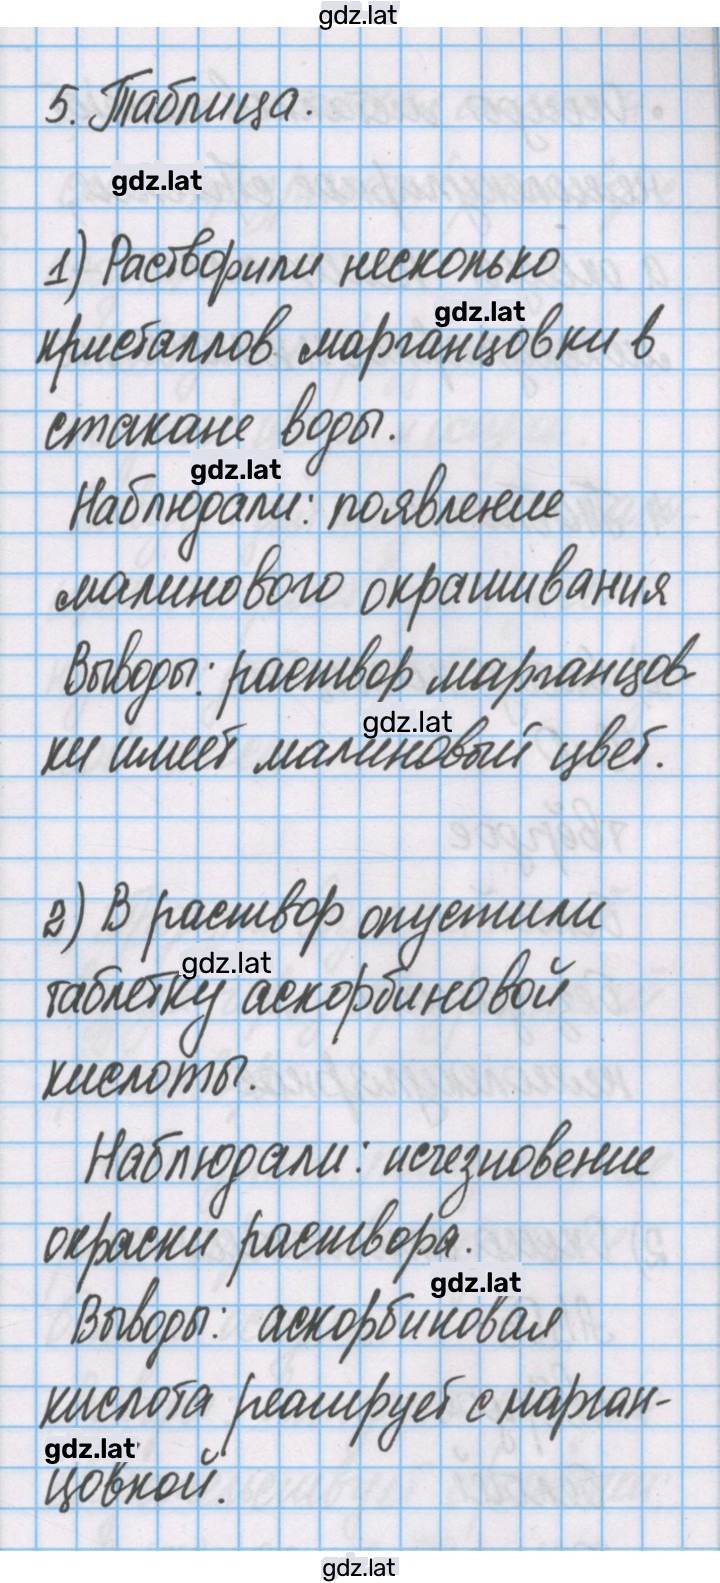 gdz.lat
5. Таблица.
gdz.lat
1) Растворили несколько
gdz.lat
кристаллов марганцовки в
стакане воды.
gdz.lat
Наблюдали: появление
малинового окрашивания
Выводы: раствор марганцов
gdz.lat
ки имеет малиновый цвет.
2) В раствор опустили
gdz.lat
таблетку аскорбиновой
кислоты.
Наблюдали: исчезновение
окраски раствора.
gdz.lat
Выводы: аскорбиновая
кислота реагирует с марган-
gdz.lat
цовкой.
gdz.lat